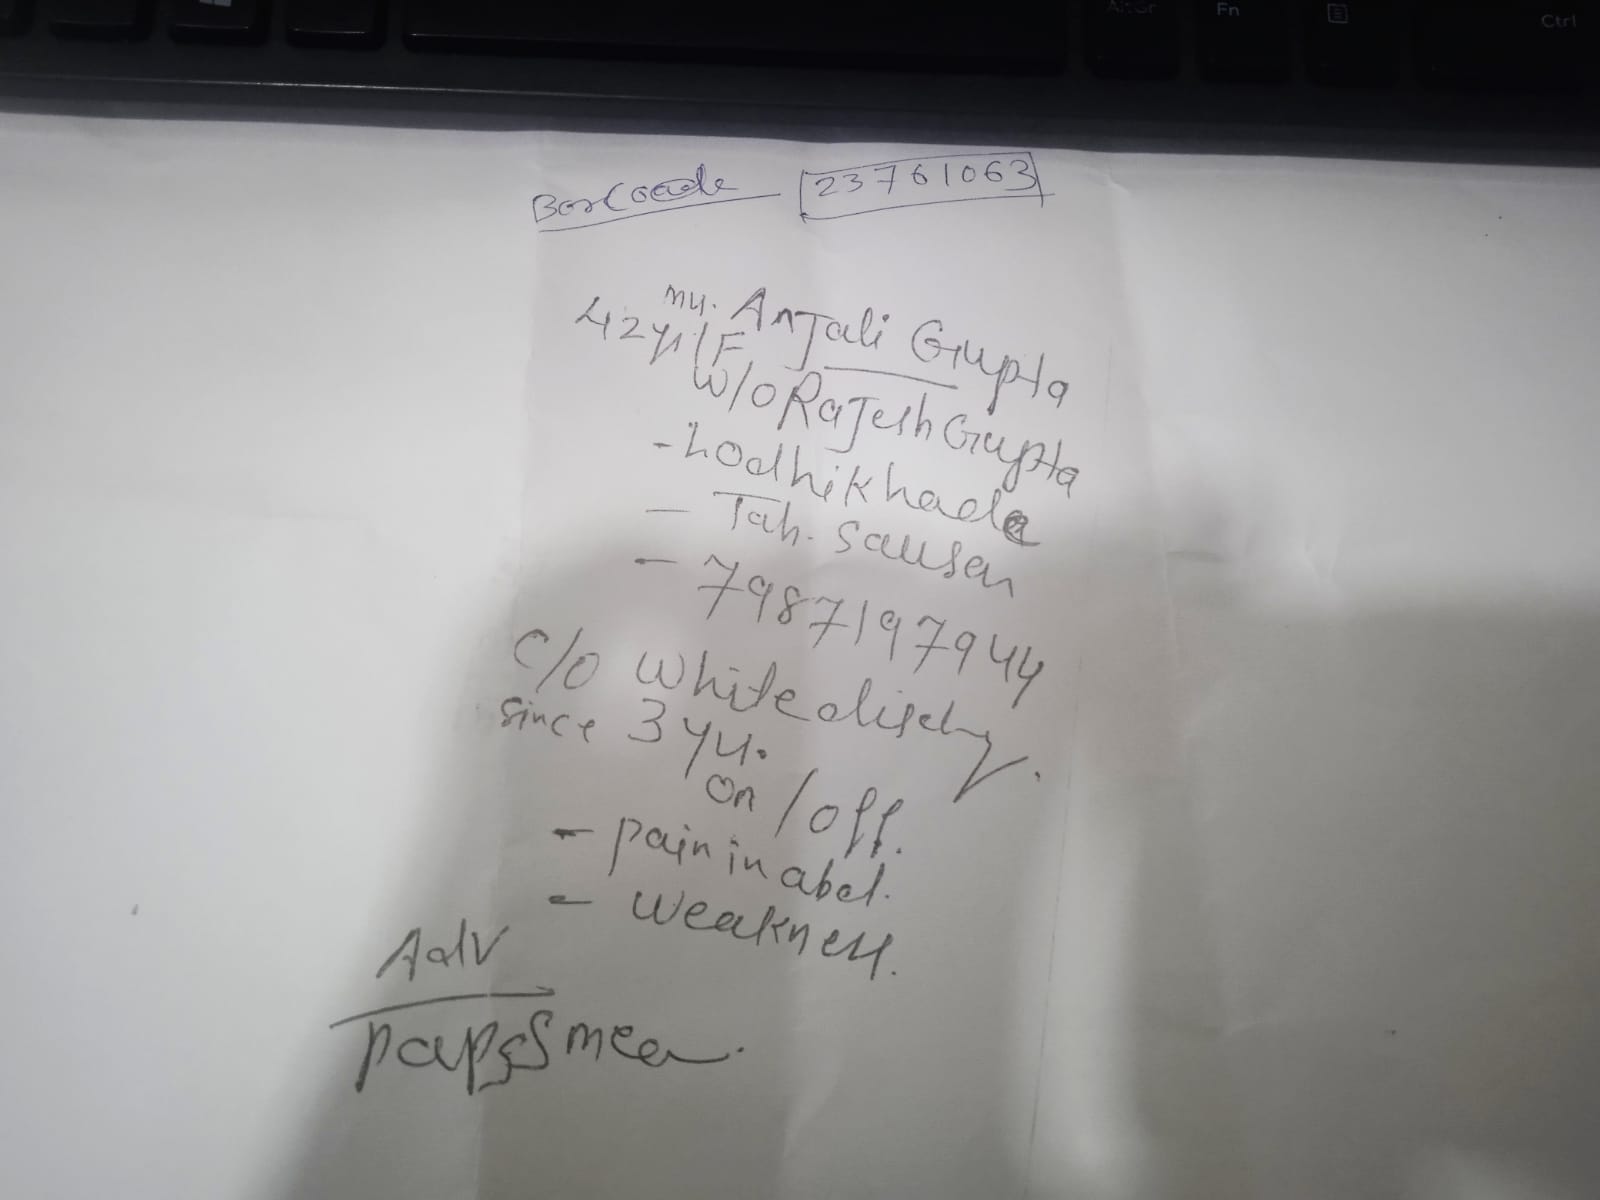 AltGr Fn Ctrl
BarCoade 23761063
Mrs. Anjali Gupta
42yr/F
W/o Rajesh Gupta
- Lodhikheda
- Tah. Sausar
- 7987197944
C/o White disch.
since 3 yr.
on / off.
- pain in abd.
- weakness.
Adv
papsSmear.